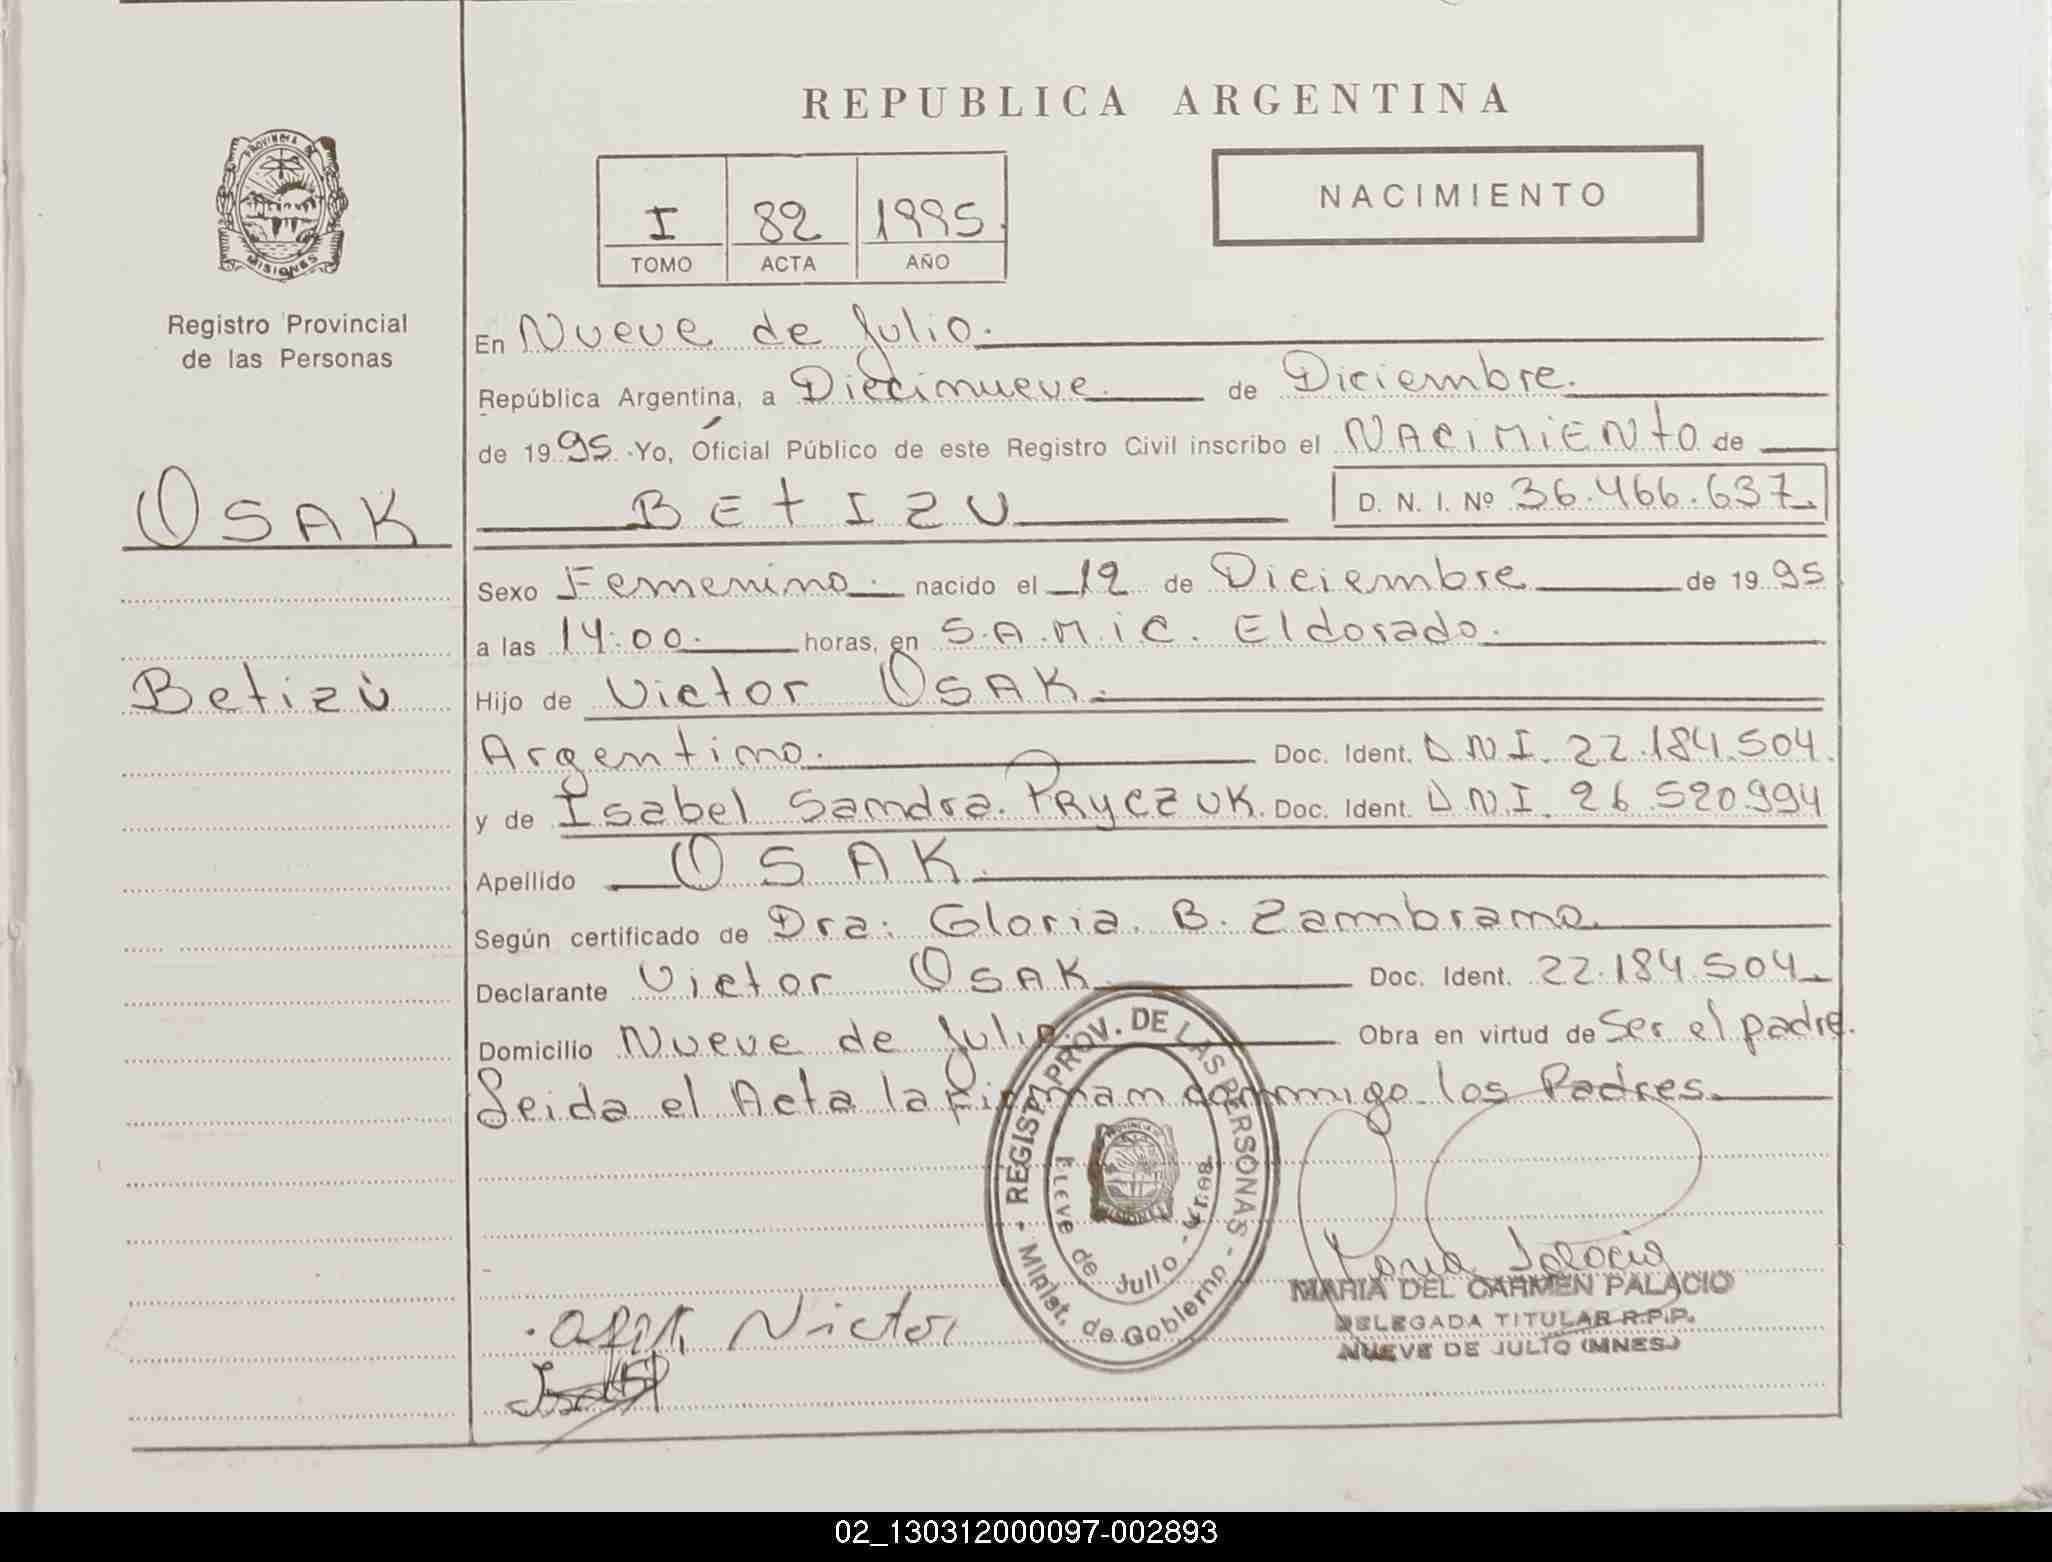 REPUBLICA ARGENTINA
PROVINCIA DE
MISIONES
I 82 1995.
TOMO ACTA AÑO
NACIMIENTO
Registro Provincial
de las Personas
OSAK
Betizú
En Nueve de Julio.
República Argentina, a Diecinueve de Diciembre.
de 1995 Yo, Oficial Público de este Registro Civil inscribo el NACIMIENTO de
BETIZU D. N. I. Nº 36.466.637.
Sexo Femenino. nacido el 12 de Diciembre de 1995
a las 14:00. horas, en S.A.M.i.C. Eldorado.
Hijo de Victor OSAK.
Argentino. Doc. Ident. D.N.I. 22.184.504.
y de Isabel Sandra. PRYCZUK. Doc. Ident. D.N.I. 26.520.994
Apellido OSAK.
Según certificado de Dra: Gloria. B. Zambrano.
Declarante Victor OSAK Doc. Ident. 22.184.504.
Domicilio Nueve de Julio Obra en virtud de Ser el padre.
Leida el Acta la Firman conmigo los Padres.
REGIST. PROV. DE LAS PERSONAS - Minist. de Gobierno -
de Julio -
MISIONES
Victor
MARIA DEL CARMEN PALACIO
DELEGADA TITULAR R.P.P.
NUEVE DE JULIO (MNES.)
02_130312000097-002893